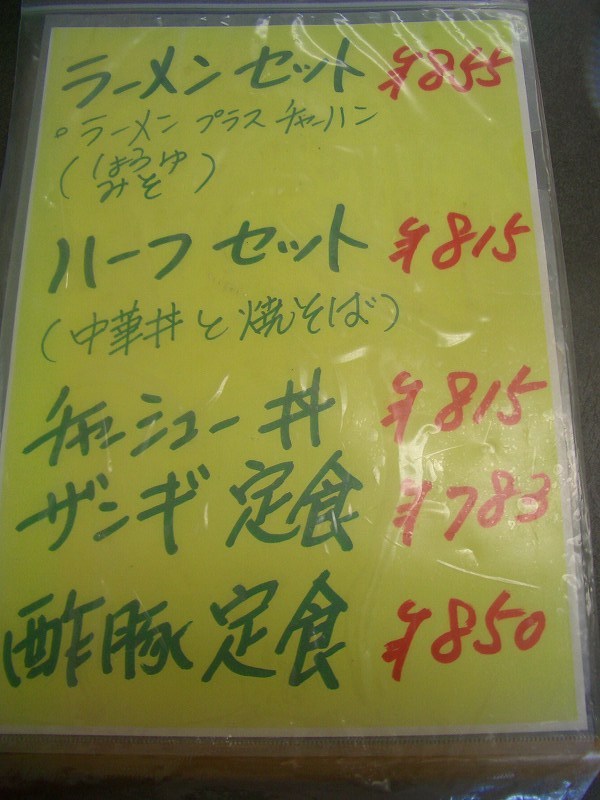 ラーメンセット ¥855
。ラーメン プラス チャーハン
(しょうゆ
みそ)
ハーフ セット ¥815
(中華丼と焼そば)
チャーシュー丼 ¥815
ザンギ定食 ¥783
酢豚定食 ¥850